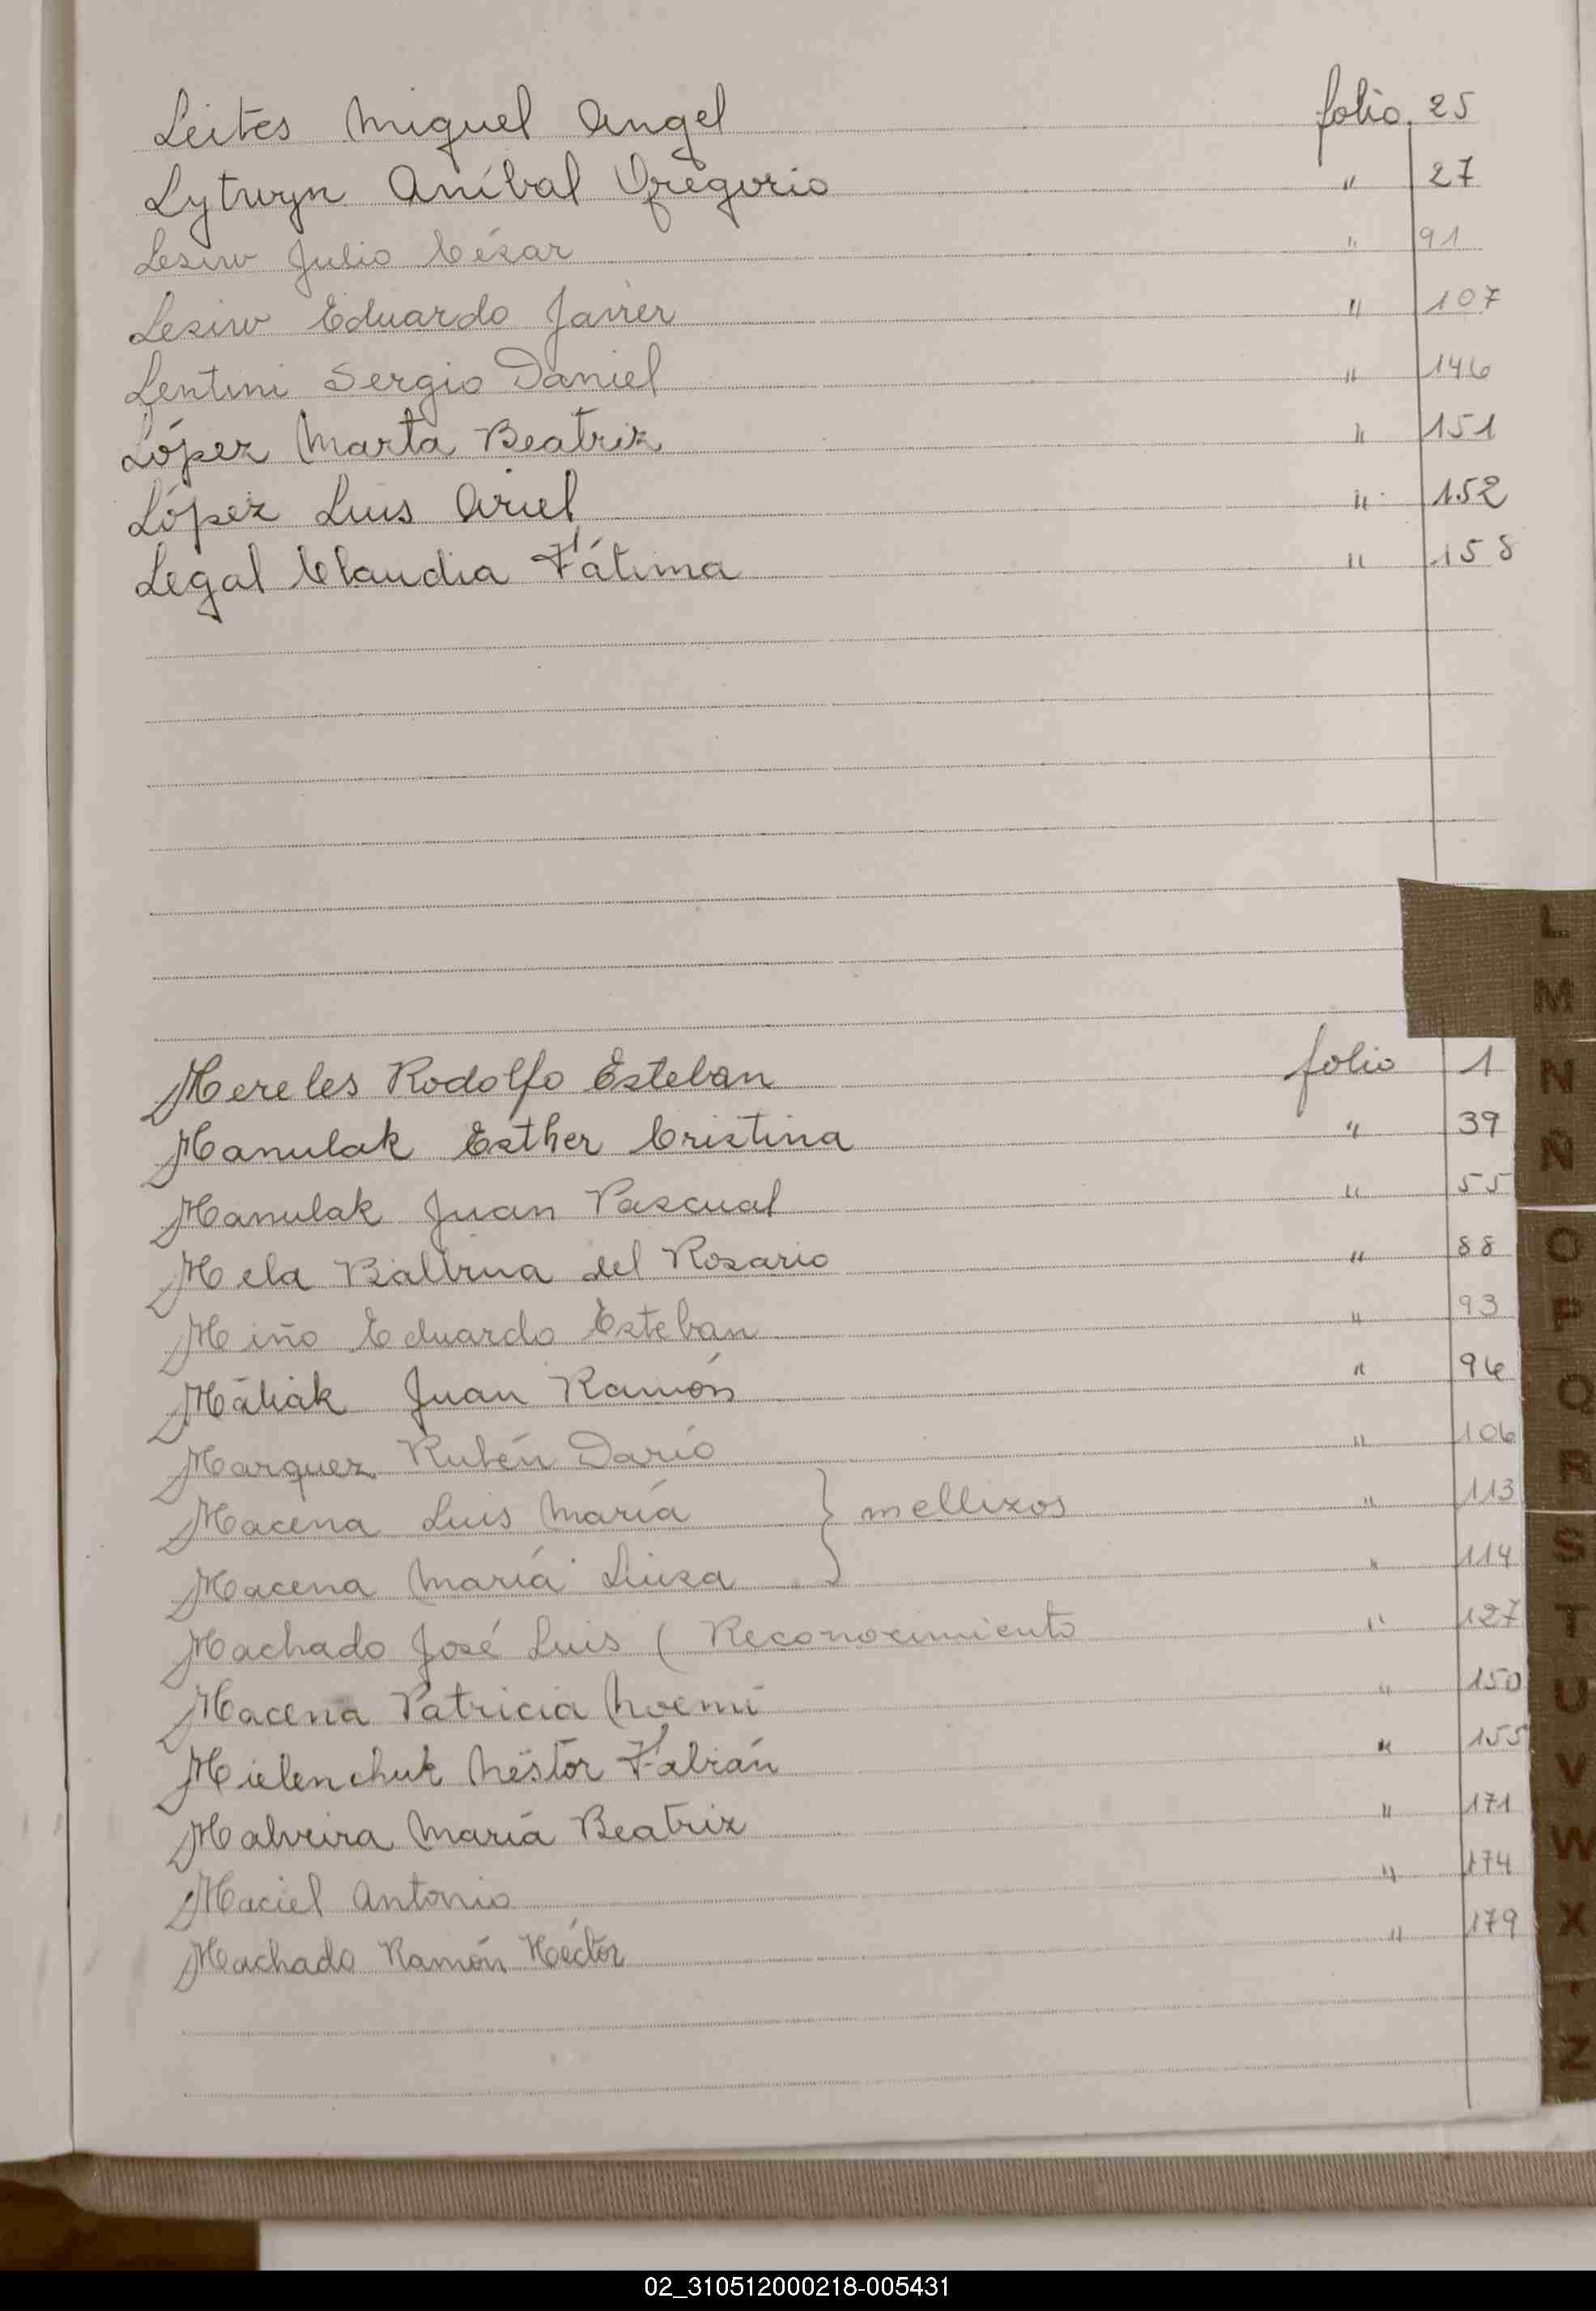 Leites Miguel Angel folio 25
Lytwyn Aníbal Gregorio " 27
Lesiw Julio César " 91
Lesiw Eduardo Javier " 107
Lentini Sergio Daniel " 146
López Marta Beatriz " 151
López Luis Ariel " 152
Legal Claudia Fátima " 158
Mereles Rodolfo Esteban folio 1
Manulak Esther Cristina " 39
Manulak Juan Pascual " 55
Mela Balbina del Rosario " 88
Miño Eduardo Esteban " 93
Juan Ramón " 96
Marquez Rubén Darío " 106
Macena Luis María } mellizos " 113
Macena María Luisa " 114
Machado José Luis ( Reconocimiento " 127
Macena Patricia Noemi " 150
Mielenchuk Néstor Fabián " 155
Malveira María Beatriz " 171
Maciel Antonio " 174
Machado Ramón Héctor " 179
L
M
N
Ñ
O
P
Q
R
S
T
U
V
W
X
Y
Z
02_310512000218-005431